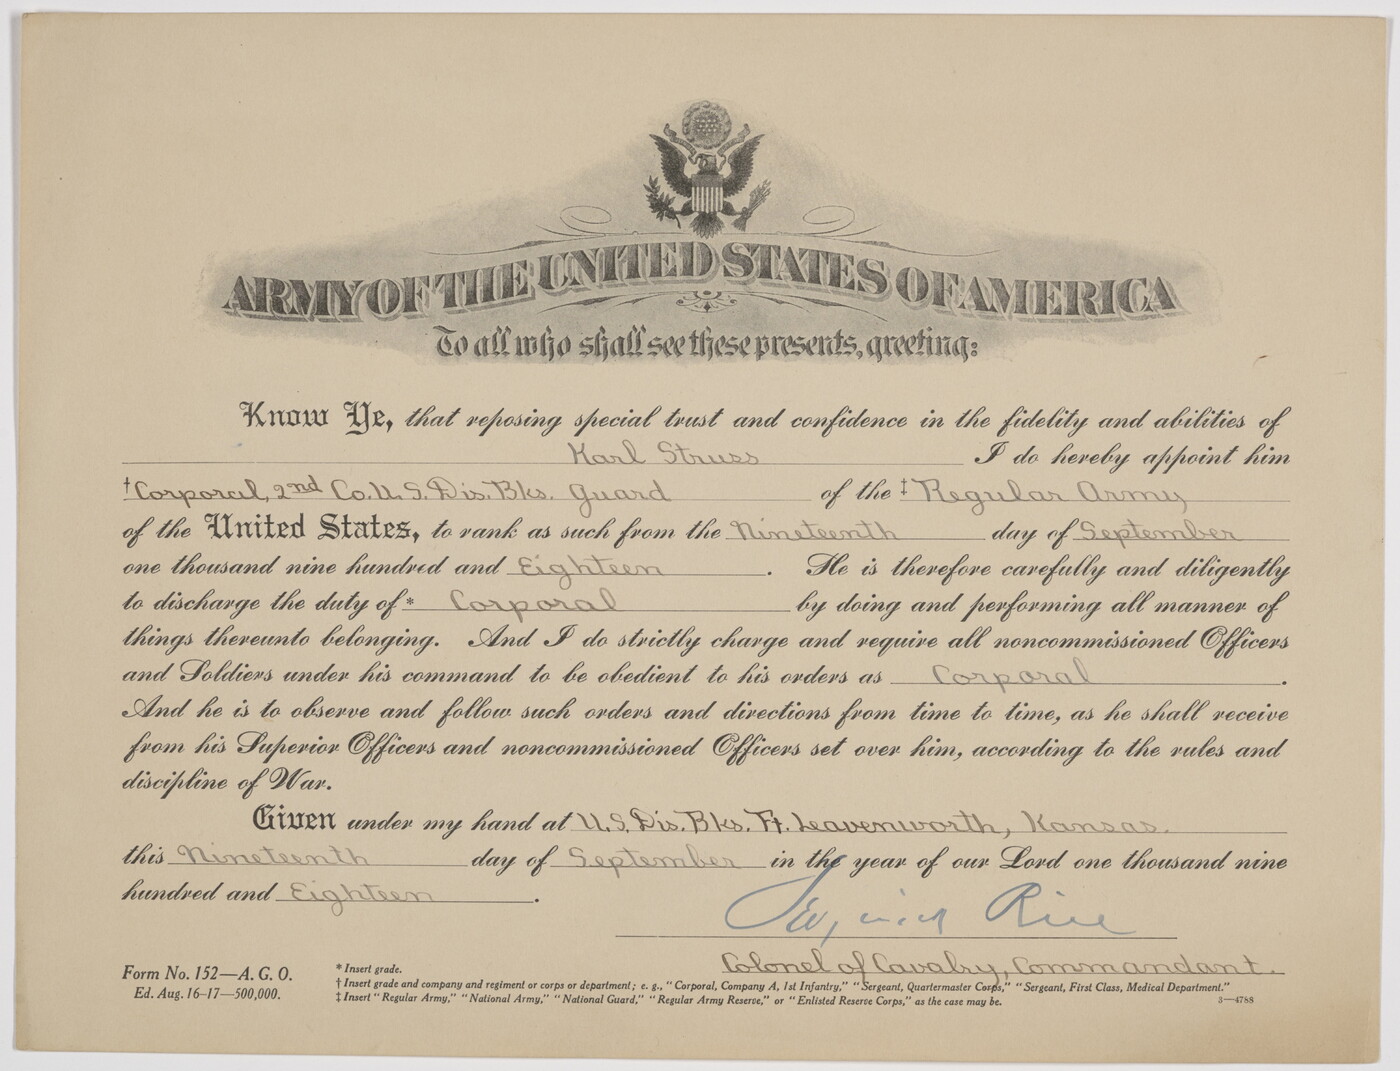 ARMY OF THE UNITED STATES OF AMERICA
To all who shall see these presents, greeting:
Know Ye, that reposing special trust and confidence in the fidelity and abilities of
Karl Struss I do hereby appoint him
†Corporal, 2nd Co. U. S. Dis. Bks. Guard of the ‡ Regular Army
of the United States, to rank as such from the Nineteenth day of September
one thousand nine hundred and Eighteen. He is therefore carefully and diligently
to discharge the duty of* Corporal by doing and performing all manner of
things thereunto belonging. And I do strictly charge and require all noncommissioned Officers
and Soldiers under his command to be obedient to his orders as Corporal.
And he is to observe and follow such orders and directions from time to time, as he shall receive
from his Superior Officers and noncommissioned Officers set over him, according to the rules and
discipline of War.
Given under my hand at U. S. Dis. Bks. Ft. Leavenworth, Kansas.
this Nineteenth day of September in the year of our Lord one thousand nine
hundred and Eighteen.
Rice
Colonel of Cavalry, Commandant.
Form No. 152—A. G. O.
Ed. Aug. 16-17—500,000.
* Insert grade.
† Insert grade and company and regiment or corps or department; e. g., "Corporal, Company A, 1st Infantry," "Sergeant, Quartermaster Corps," "Sergeant, First Class, Medical Department."
‡ Insert "Regular Army," "National Army," "National Guard," "Regular Army Reserve," or "Enlisted Reserve Corps," as the case may be.
3—4788